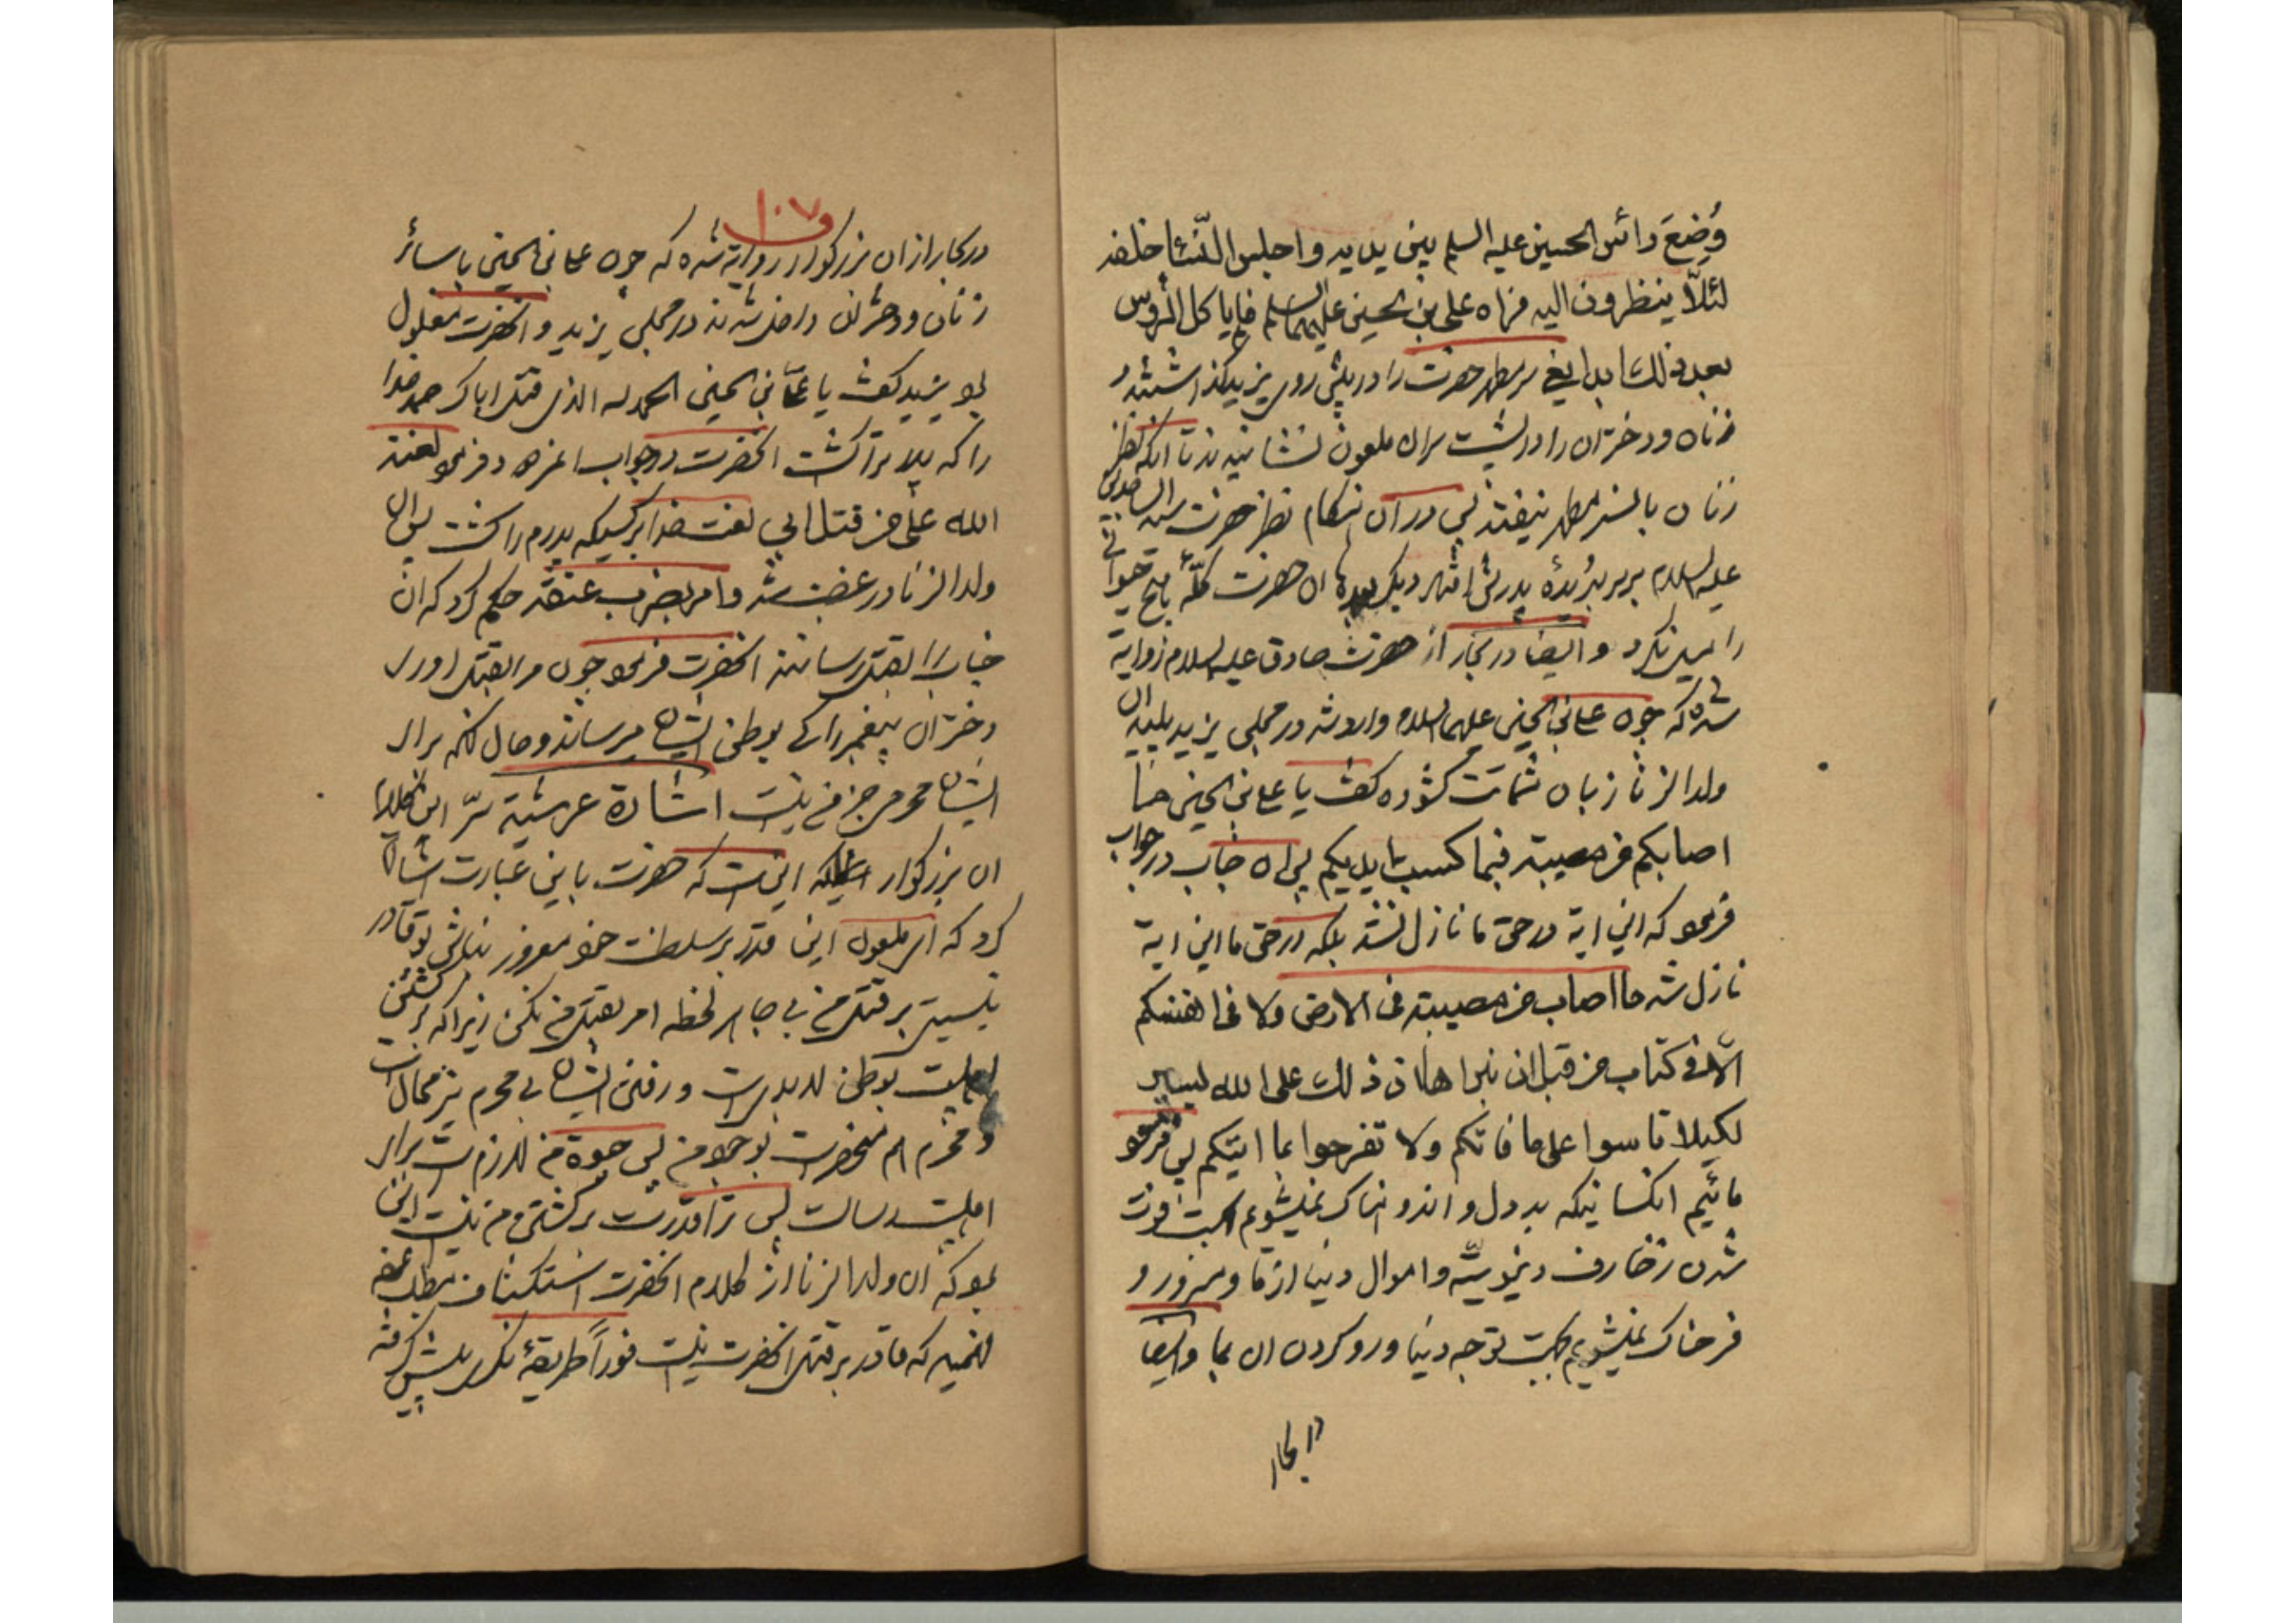 وُضِعَ رائس الحسين عليه السلم بين يديه واجلس النّسٓا خلفه
لئلّا ينظرون اليه فراه على بن الحسين عليهما السلم فلم ياكل الرّوس
بعد ذلك ابدا يعنى سر مطهر حضرت را در پيش روى يزيد گذاشتند و
زنان و دختران را در پشت سر ان ملعون نشانيدند تا انكه نظر
زنان بانسر مطهر نيفتد پس در ان هنكام نظر حضرت سيد الساجدين
عليه السلام بر سر بريدۀ پدرش افتاد ديكر بعد ان حضرت كلّۀ هيچ حيوانى
را ميل نكرد و ايضا در بحار از حضرت صادق عليه السلام روايه
شده كه چون على بن الحسين عليهما السلام وارد شد در مجلس يزيد پليد ان
ولد الزنا زبان شماتت گشوده كفت يا على بن الحسين ما
اصابكم من مصيبة فبما كسبت ايديكم پس ان جناب در جواب
فرمود كه اين ايه در حق ما نازل نشد بلكه در حق ما اين ايه
نازل شد ما اصاب من مصيبة فى الارض ولا فى انفسكم
الّا فى كتاب من قبل ان نبراها ان ذلك على الله ليسير
لكيلا تاسوا على ما فاتكم ولا تفرحوا بما اتيكم پس فرمود
مائيم انكسانيكه بد دل و اندوهناك نميشويم بجهت فوت
شدن زخارف دنيويّه و اموال دنيا از ما و مسرور و
فرحناك نميشويم بجهت توجه دنيا و رو كردن ان بما و ايضا
در بحار
١٠٧
در بحار از ان بزركوار روايه شده كه چون على بن الحسين با سائر
زنان و دختران داخل شدند در مجلس يزيد و انحضرت مغلول
بود يزيد كفت يا على بن الحسين الحمد لله الذى قتل اباك حمد خدا
را كه پدر ترا كشت انحضرت در جواب فرمود لعنة
الله على من قتل ابي لعنت خدا بر كسيكه پدرم را كشت پس ان
ولد الزنا در غضب شد و امر بضرب عنقه حكم كرد كه ان
جناب را بقتل رسانند انحضرت فرمود چون مرا بقتل اورى
دختران پيغمبر را كه بوطن ايشان ميرساند و حال انكه براى
ايشان محرمى جز من نيست اشارة عرشية سرّ اين كلام
ان بزركوار اينست كه حضرت باين عبارت اشاره
كرد كه اى ملعون اين قدر بر سلطنت خود مغرور نباش تو قادر
نيستى بر قتل من بى جا هر لحظه امر بقتل من نكن زيرا كه بر كشتن
اهلبيت بوطن لابد است و رفتن ايشان بى محرم نيز محال است
و محرم هم منحصر است بوجود من پس حيوة من لازم است براى
اهلبيت رسالت پس ترا قدرت بر كشتن من نيست اين
بود كه ان ولد الزنا از كلام انحضرت استكشاف مطلب نموده
فهميد كه قادر بر قتل انحضرت نيست فورا طريقۀ ديكر پيش كرفته